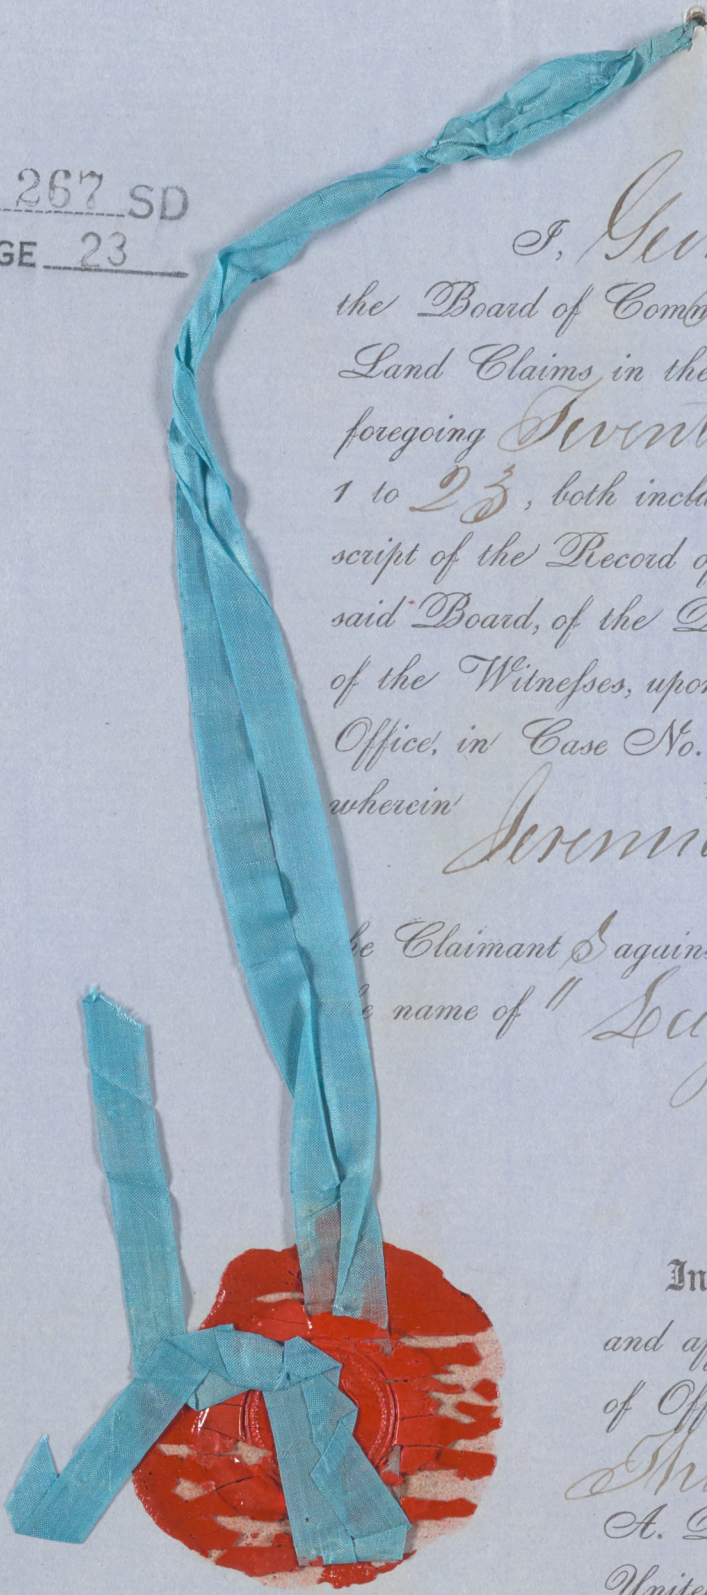 267 SD
GE 23
I, Geo
the Board of Comm
Land Claims in the
foregoing Twent
1 to 23, both inclu
script of the Record o
said Board, of the D
of the Witnesses, upon
Office, in Case No.
wherein
Jeremi
he Claimant s agains
e name of "
In
and a
of Off
Thi
A. D
United